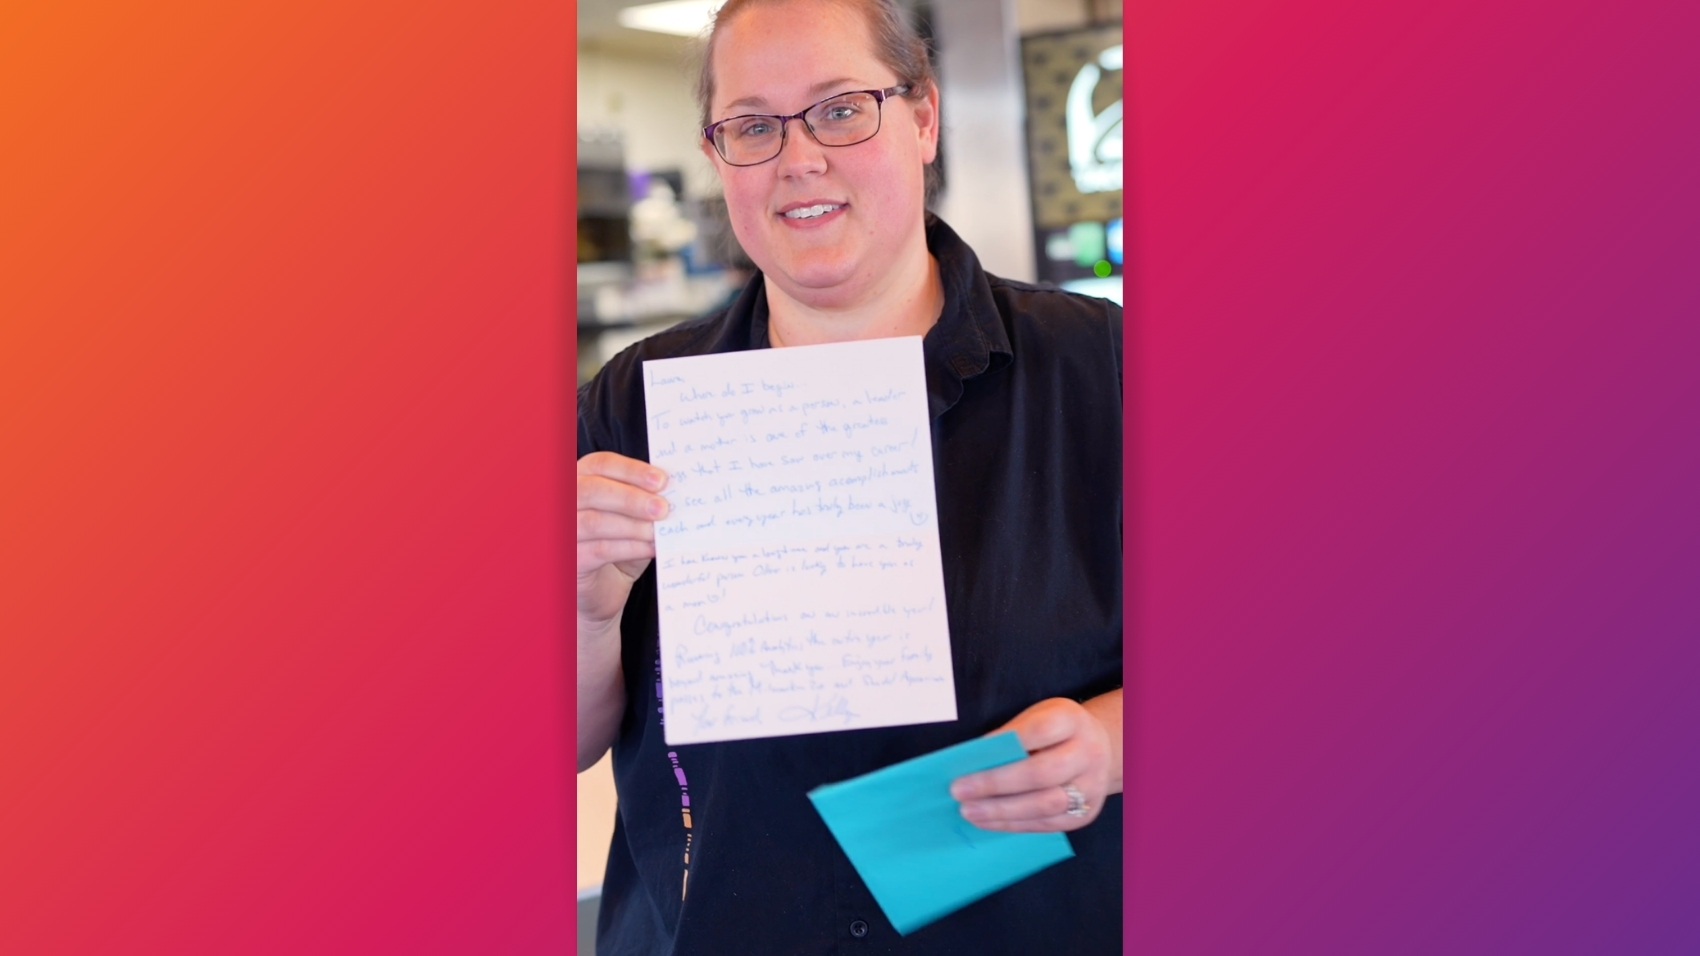 Laura,
Where do I begin...
To watch you grow as a person, a leader
and a mother is one of the greatest
that I have seen over my career!
To see all the amazing acomplishments
each and every year has truly been a joy
I have known you a long time and you are a truly
wonderful person is lucky to have you as
a mom!
Congratulations on an incredible year!
Running 100% the entire year is
beyond amazing. Thank you. Enjoy your family
passes to the Milwaukee Zoo and
Your friend Kelly